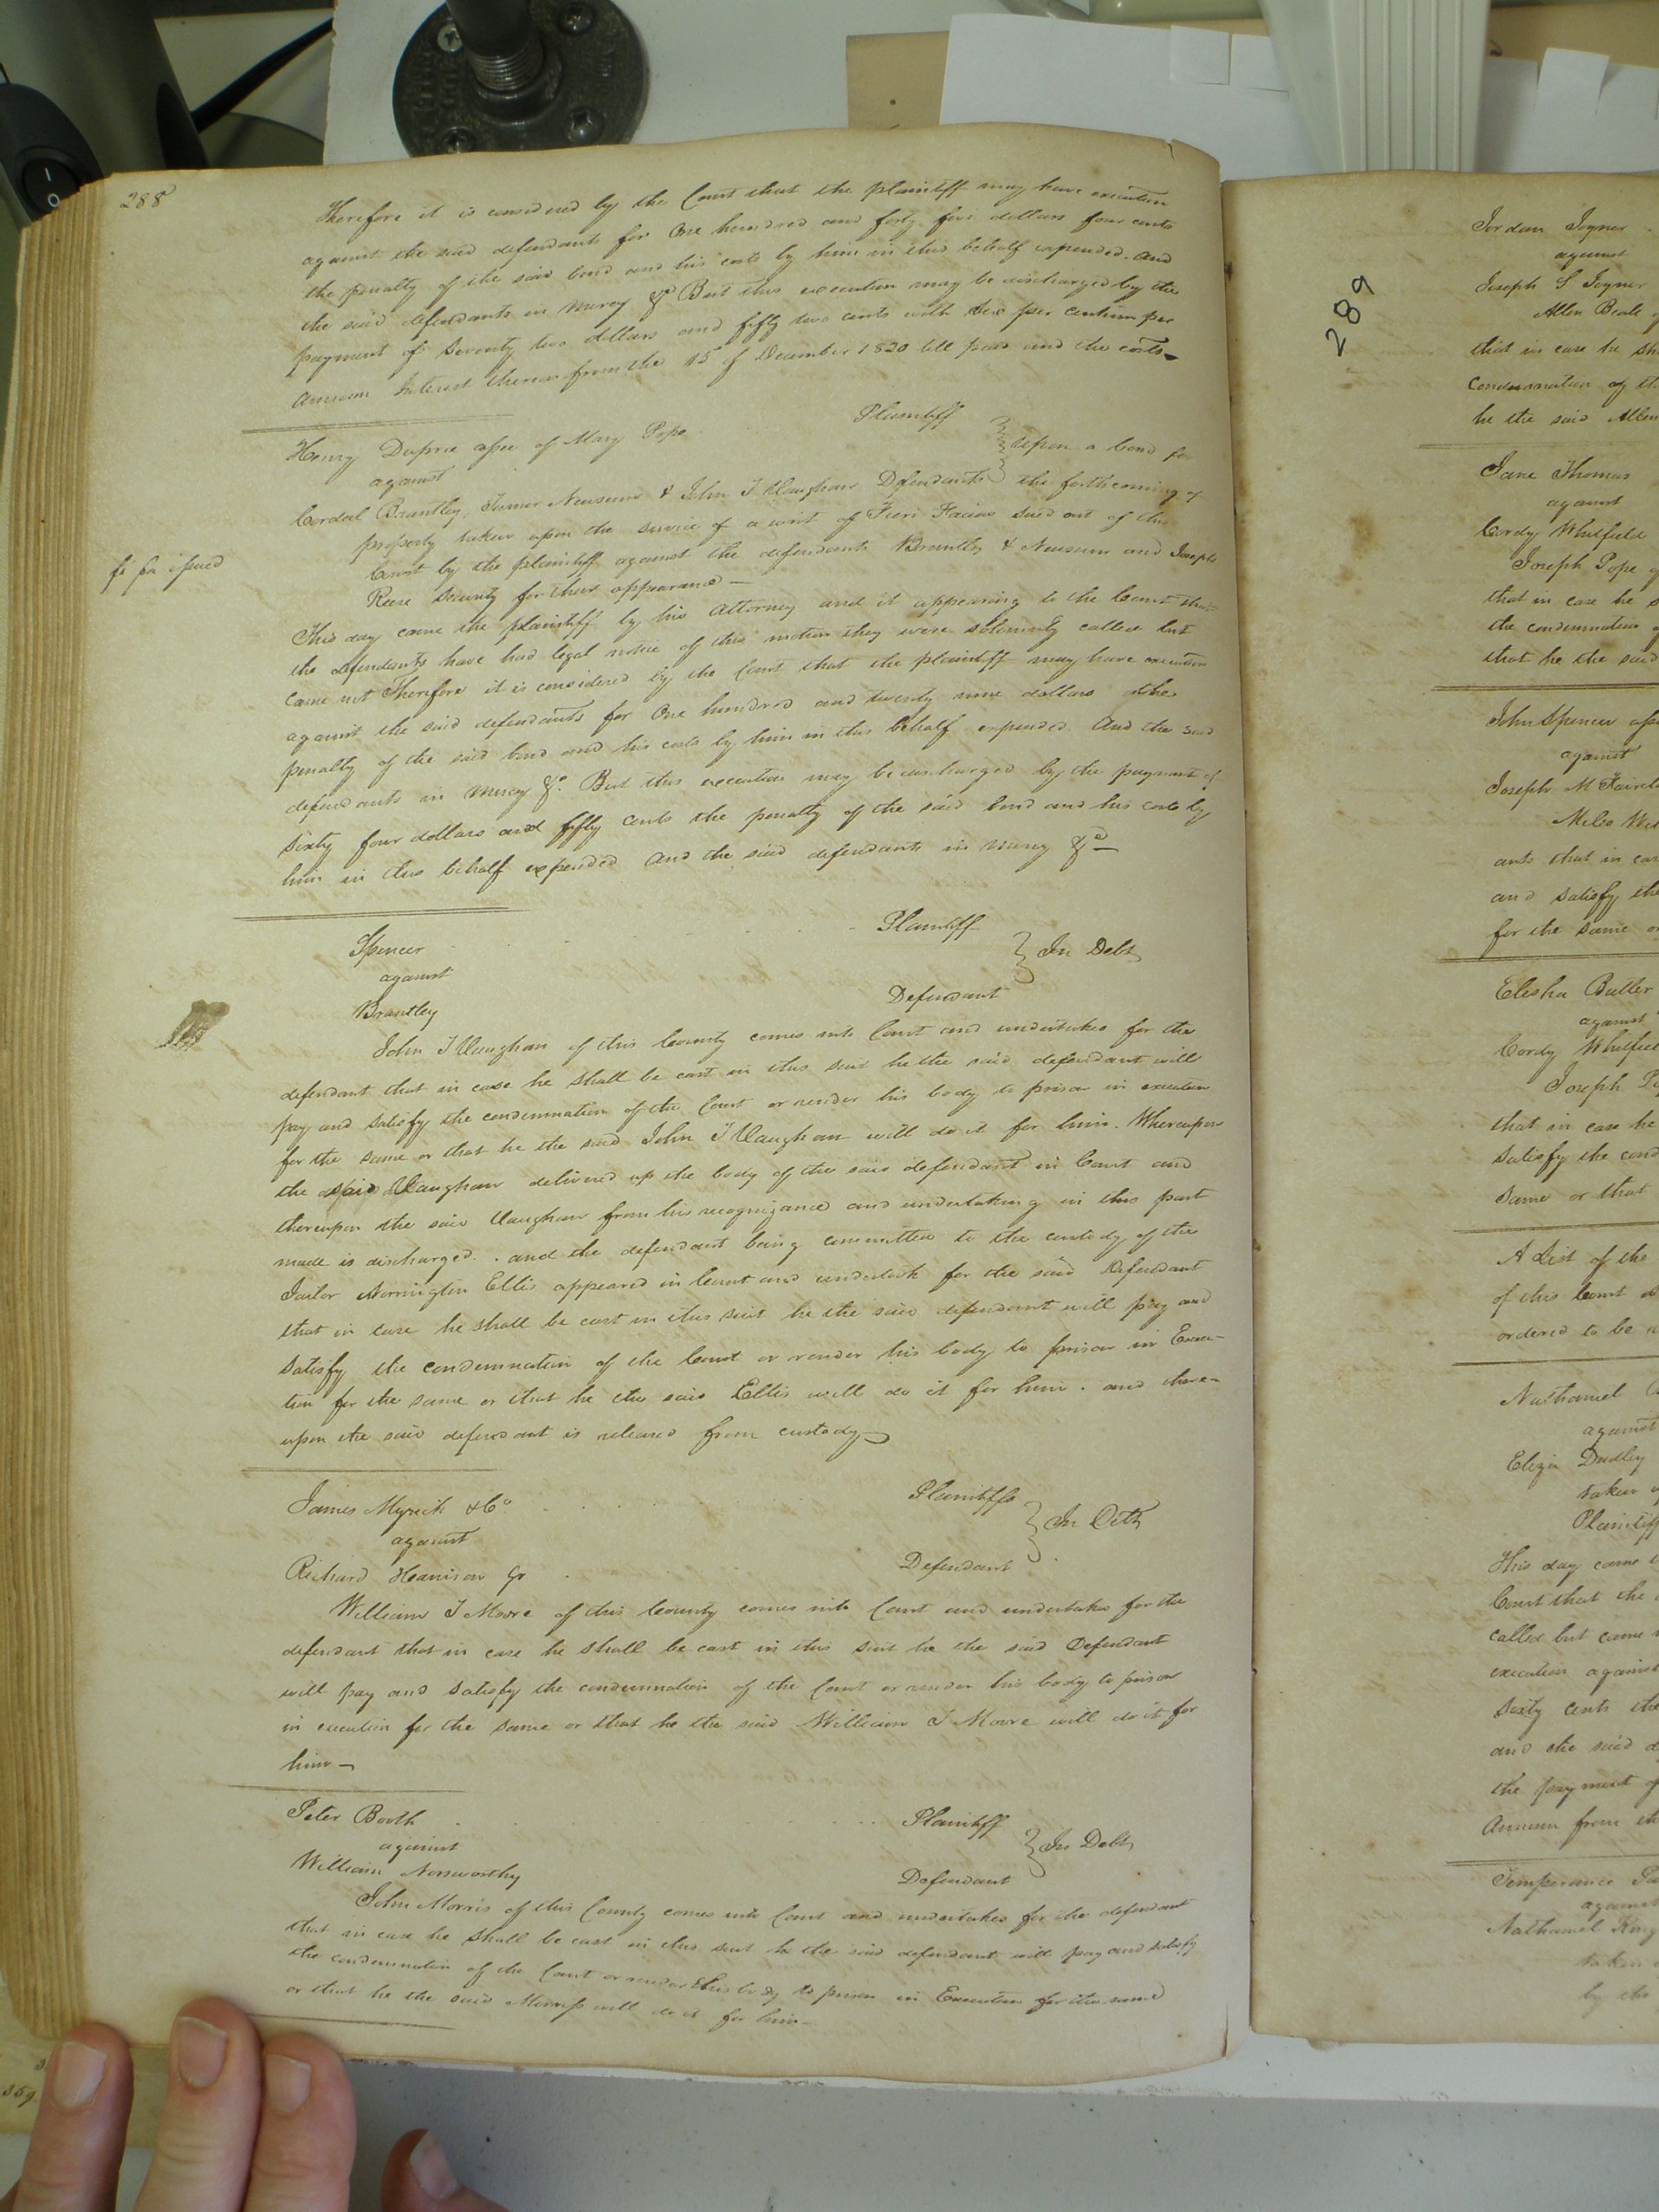 288
Therefore it is considered by the Court that the plaintiff may have execution
against the said defendants for One hundred and forty five dollars four cents
the penalty of the said bond and his costs by him in this behalf expended. And
the said defendants in mercy &c But this execution may be discharged by the
payment of Seventy two dollars and fifty two cents with Six per centum per
annum Interest thereon from the 15th of December 1820 till paid and the costs
Henry Dupree assee of Mary Pope Plaintiff
against
Upon a bond for
Cordal Brantley, Turner Newsum & John T Vaughan Defendants the forthcoming of
property taken upon the service of a writ of Fieri Facias sued out of this
fi fa issued
Court by the plaintiff against the defendants Brantley & Newsum and Joseph
Reese Security for their appearance —
This day came the plaintiff by his Attorney and it appearing to the Court that
the defendants have had legal notice of this motion they were solemnly called but
came not Therefore it is considered by the Court that the plaintiff may have execution
against the said defendants for One hundred and twenty nine dollars the
penalty of the said bond and his costs by him in this behalf expended And the said
defendants in mercy &c. But this execution may be discharged by the payment of
Sixty four dollars and fifty cents the penalty of the said bond and his costs by
him in this behalf expended And the said defendants in mercy &c —
Spencer Plaintiff
against
In Debt
Brantley Defendant
John T Vaughan of this County comes into Court and undertakes for the
defendant that in case he shall be cast in this suit he the said defendant will
pay and satisfy the condemnation of the Court or render his body to prison in execution
for the same or that he the said John T Vaughan will do it for him. Whereupon
the said Vaughan delivered up the body of the said defendant in Court and
thereupon the said Vaughan from his recognizance and undertaking in this part
made is discharged. and the defendant being committed to the custody of the
Jailor Dorrington Ellis appeared in Court and undertook for the said Defendant
that in case he shall be cast in this suit he the said defendant will pay and
satisfy the condemnation of the Court or render his body to prison in Execu-
tion for the same or that he the said Ellis will do it for him. and there-
upon the said defendant is released from custody
James Myrick & Co. Plaintiffs
against
In Debt
Richard Harrison Jr Defendant
William T Moore of this County comes into Court and undertakes for the
defendant that in case he shall be cast in this suit he the said Defendant
will pay and satisfy the condemnation of the Court or render his body to prison
in execution for the same or that he the said William T Moore will do it for
him —
Peter Booth Plaintiff
against
In Debt
William Norsworthy Defendant
John Morris of this County comes into Court and undertakes for the defendant
that in case he shall be cast in this suit he the said defendant will pay and satisfy
the condemnation of the Court or render his body to prison in Execution for the same
or that he the said Morriss will do it for him —
289
Jordan Joyner
against
Joseph S Joyner
Allen Beale
that in case he
condemnation of
he the said Allen
Jane Thomas
against
Cordy Whitfield
Joseph Pope
that in case he
the condemnation
that he the said
John Spencer
against
Joseph M
Miles
ants that in
and satisfy the
for the same or
Elisha Butler
against
Cordy
Joseph
that in case he
satisfy the
same or that
A List of the
of this Court
ordered to be
Nathaniel
against
Eliza Dudley
taken
Plaintiff
This day came
Court that the
called but came
execution against
sixty cents the
and the said
the payment of
Annum from
Temperance
against
Nathaniel
taken
by the
359